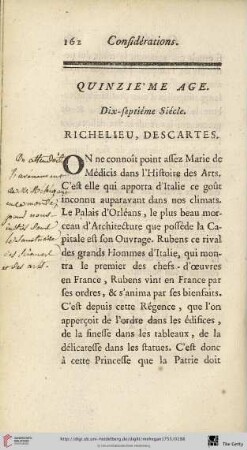 162 Considérations.
QUINZIE'ME AGE.
Dix-septiéme Siécle.
RICHELIEU, DESCARTES.
ON ne connoît point assez Marie de
Médicis dans l'Histoire des Arts.
C'est elle qui apporta d'Italie ce goût
inconnu auparavant dans nos climats.
Le Palais d'Orléans, le plus beau mor-
ceau d'Architecture que possède la Ca-
pitale est son Ouvrage. Rubens ce rival
des grands Hommes d'Italie, qui mon-
tra le premier des chefs-d'œuvres
en France, Rubens vint en France par
ses ordres, & s'anima par ses bienfaits.
C'est depuis cette Régence, que l'on
apperçoit de l'ordre dans les édifices,
de la finesse dans les tableaux, de la
délicatesse dans les statues. C'est donc
à cette Princesse que la Patrie doit
On attendoit
et des arts.
UNIVERSITÄTS-
BIBLIOTHEK
HEIDELBERG
http://digi.ub.uni-heidelberg.de/diglit/mehegan1751/0188
© Universitätsbibliothek Heidelberg
The Getty